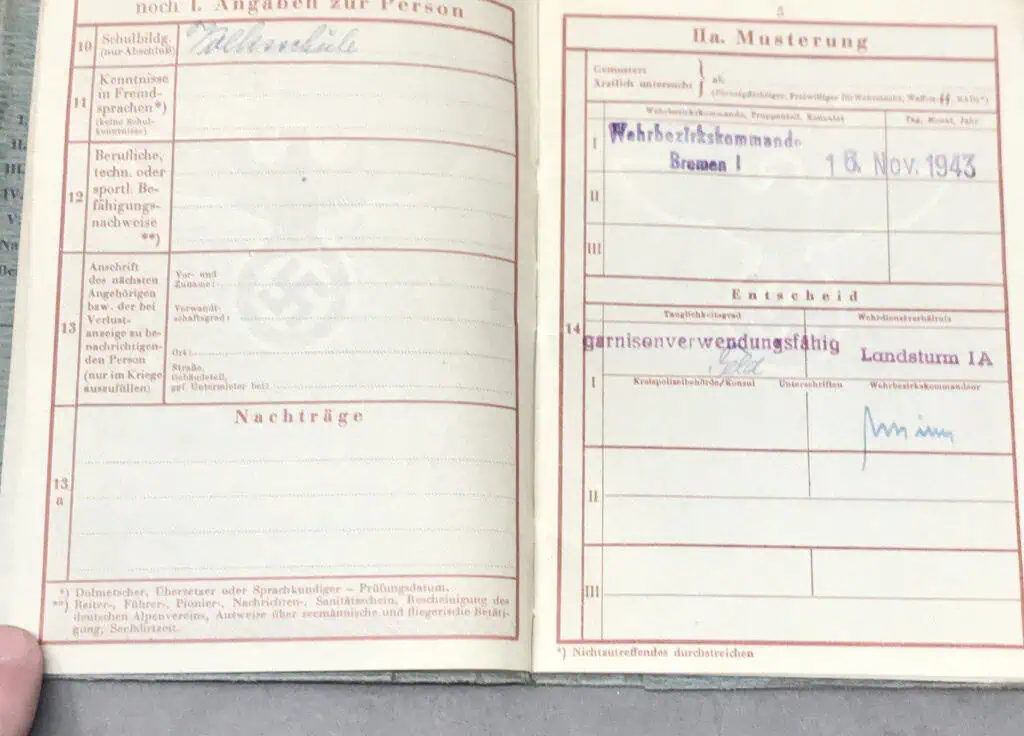 noch I. Angaben zur Person
10
Schulbildg.
(nur Abschluß)
Volksschule
11
Kenntnisse
in Fremd-
sprachen*)
(keine Schul-
kenntnisse)
12
Berufliche,
techn. oder
sportl. Be-
fähigungs-
nachweise
**)
13
Anschrift
des nächsten
Angehörigen
bzw. der bei
Verlust-
anzeige zu be-
nachrichtigen-
den Person
(nur im Kriege
auszufüllen)
Vor- und
Zuname:
Verwandt-
schaftsgrad:
Ort:
Straße,
Gebäudeteil,
ggf. Untermieter bei:
Nachträge
13
a
*) Dolmetscher, Übersetzer oder Sprachkundiger – Prüfungsdatum.
**) Reiter-, Führer-, Pionier-, Nachrichten-, Sanitätsschein, Bescheinigung des
deutschen Alpenvereins, Ausweise über seemännische und fliegerische Betäti-
gung, Seefahrtzeit.
5
IIa. Musterung
Gemustert
Ärztlich untersucht
als
(Dienstpflichtiger, Freiwilliger für Wehrmacht, Waffen-ᛋᛋ, RAD*)
Wehrbezirkskommando, Truppenteil, Konsulat
Tag, Monat, Jahr
I
Wehrbezirkskommando
Bremen I
16. Nov. 1943
II
III
Entscheid
Tauglichkeitsgrad
Wehrdienstverhältnis
14
garnisonverwendungsfähig
Landsturm IA
I
Kreispolizeibehörde/Konsul
Unterschriften
Wehrbezirkskommandeur
II
III
*) Nichtzutreffendes durchstreichen